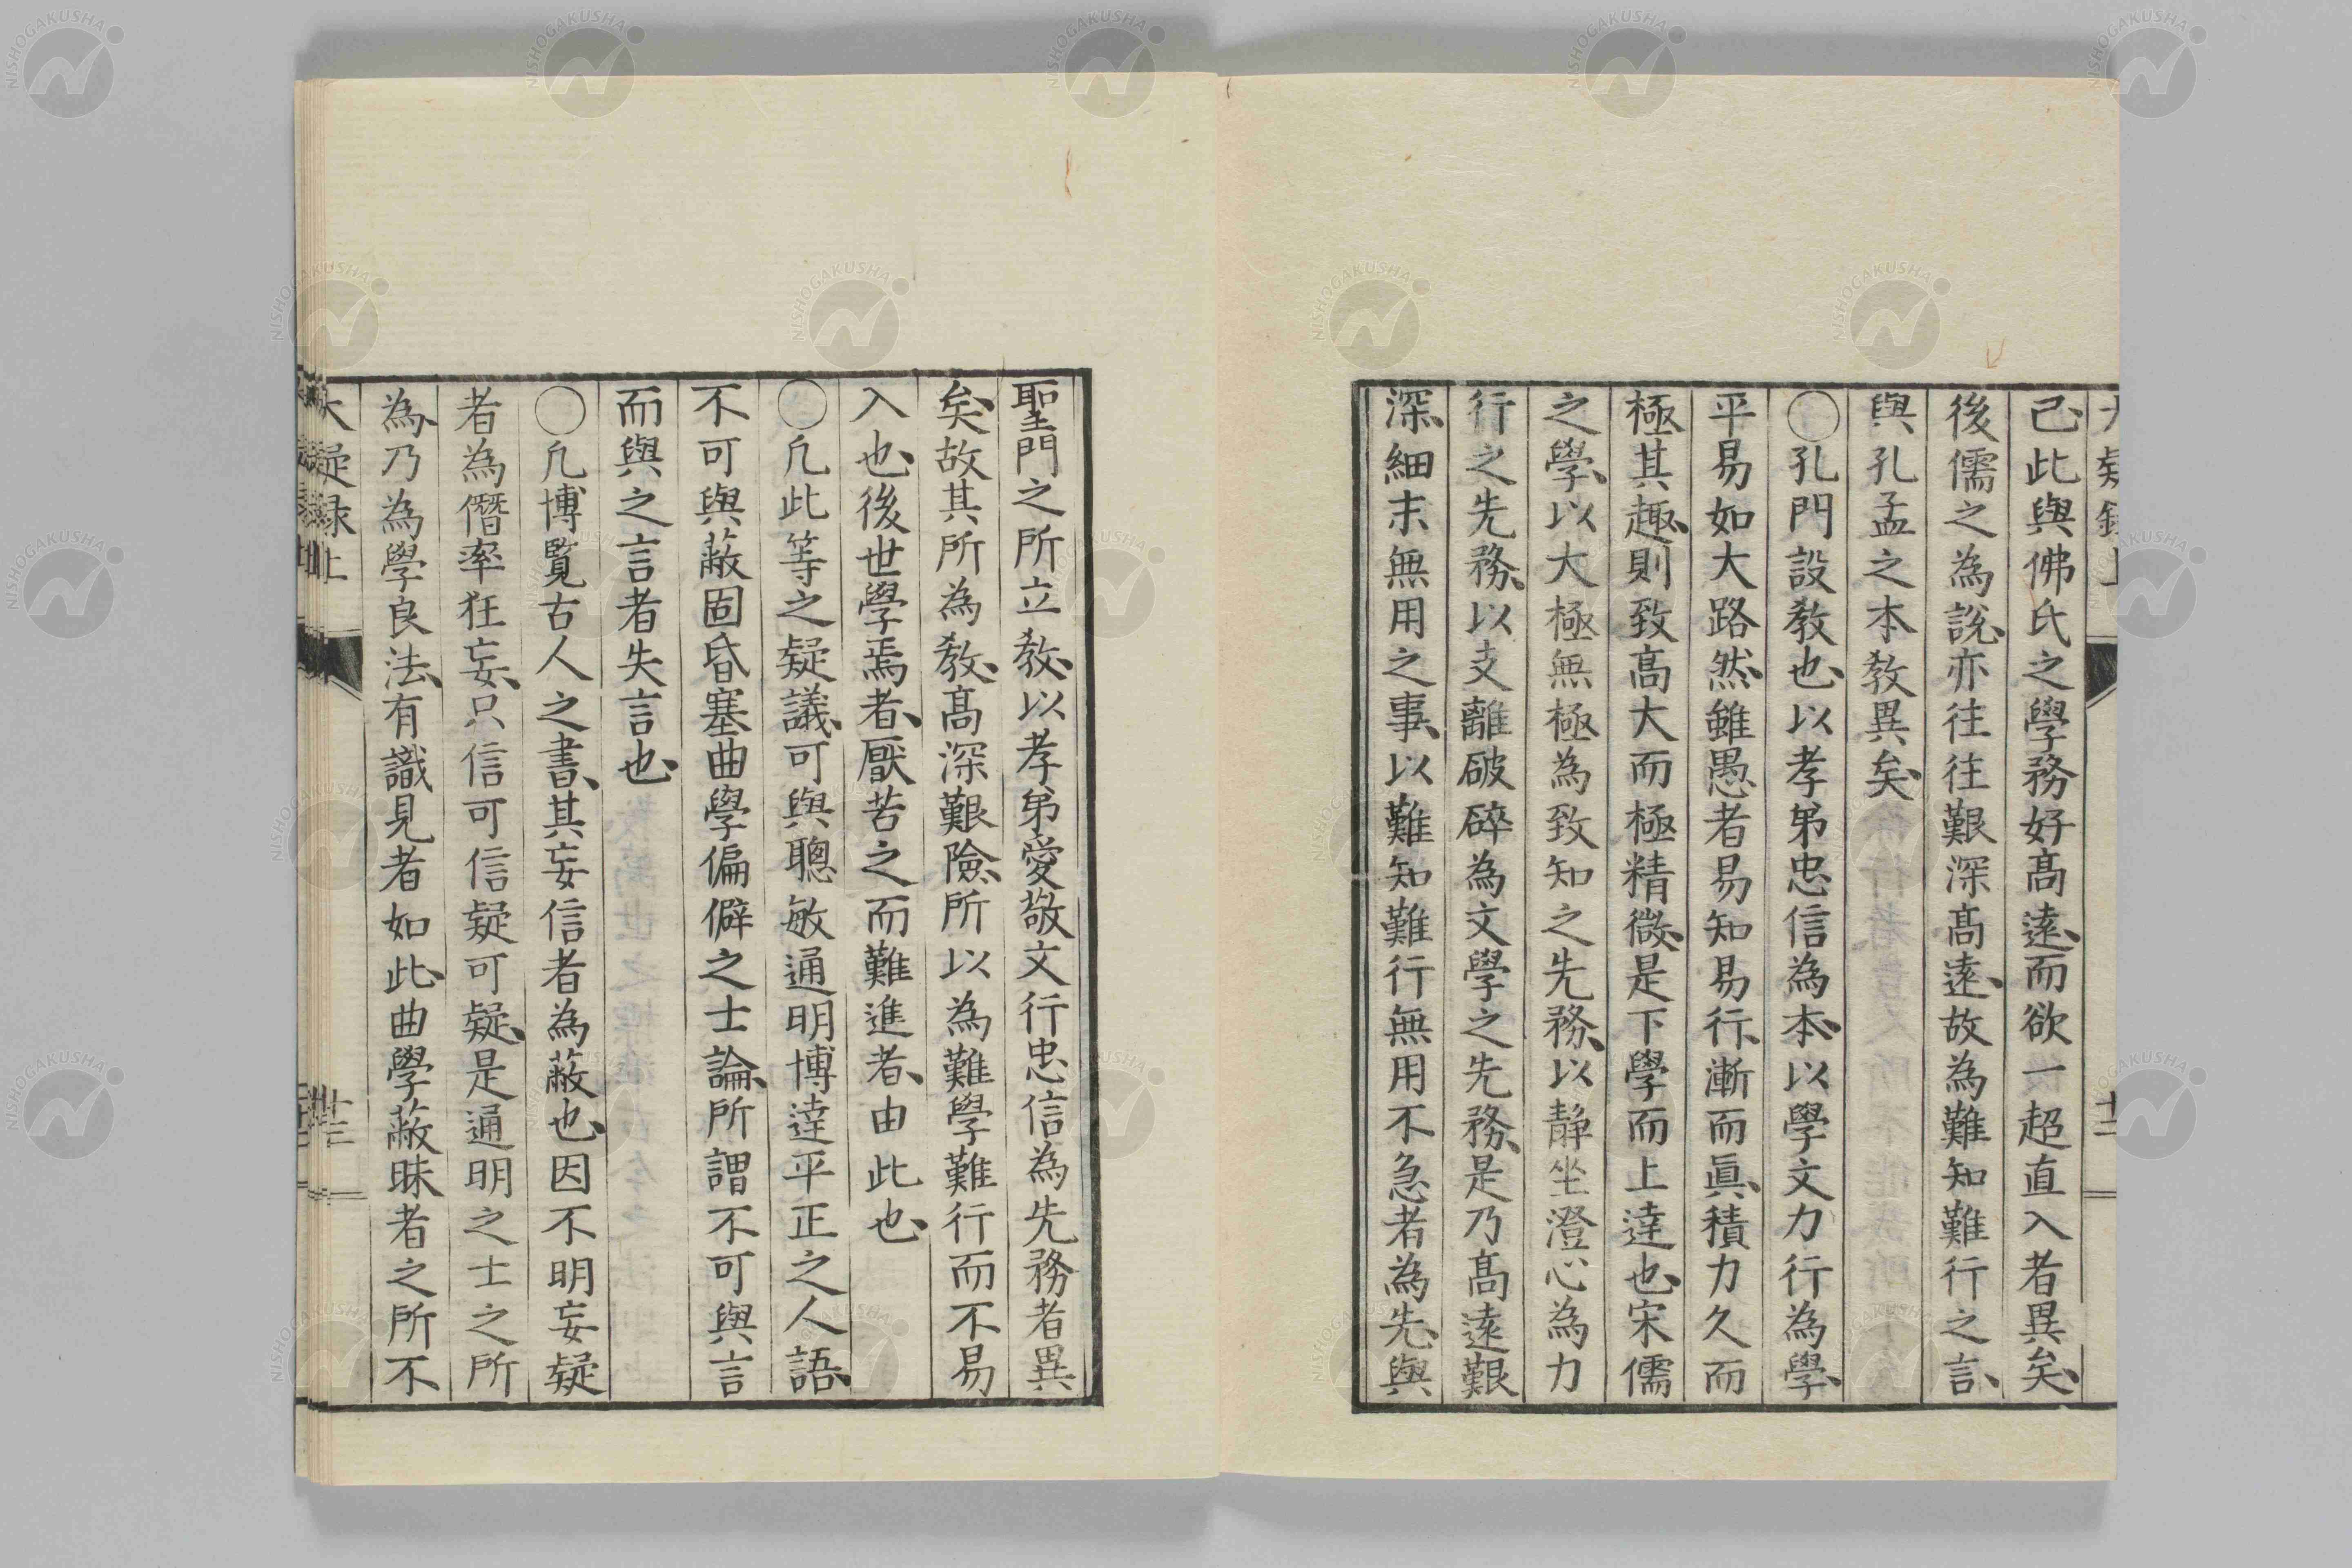 己、此與佛氏之學務好高遠、而欲一超直入者異矣、
後儒之為說、亦往往艱深高遠、故為難知難行之言、
與孔孟之本教異矣、
○孔門設教也、以孝弟忠信為本、以學文力行為學、
平易如大路然、雖愚者易知易行、漸而真積力久而
極其趣、則致髙大而極精微、是下學而上達也、宋儒
之學、以大極無極為致知之先務、以靜坐澄心為力
行之先務、以支離破碎為文學之先務、是乃髙遠艱
深、細末無用之事、以難知難行無用不急者為先、與
聖門之所立教、以孝弟愛敬文行忠信為先務者異
矣、故其所為教、髙深艱險、所以為難學難行而不易
入也、後世學焉者、厭苦之而難進者、由此也、
○凢此等之疑議、可與聰敏通明博達平正之人語、
不可與蔽固昏塞曲學偏僻之士論、所謂不可與言
而與之言者失言也、
○凢博覧古人之書、其妄信者為蔽也、因不明妄疑
者為僭率狂妄、只信可信疑可疑、是通明之士之所
為、乃為學良法、有識見者如此、曲學蔽昧者之所不
大疑録上
十三
NISHOGAKUSHA